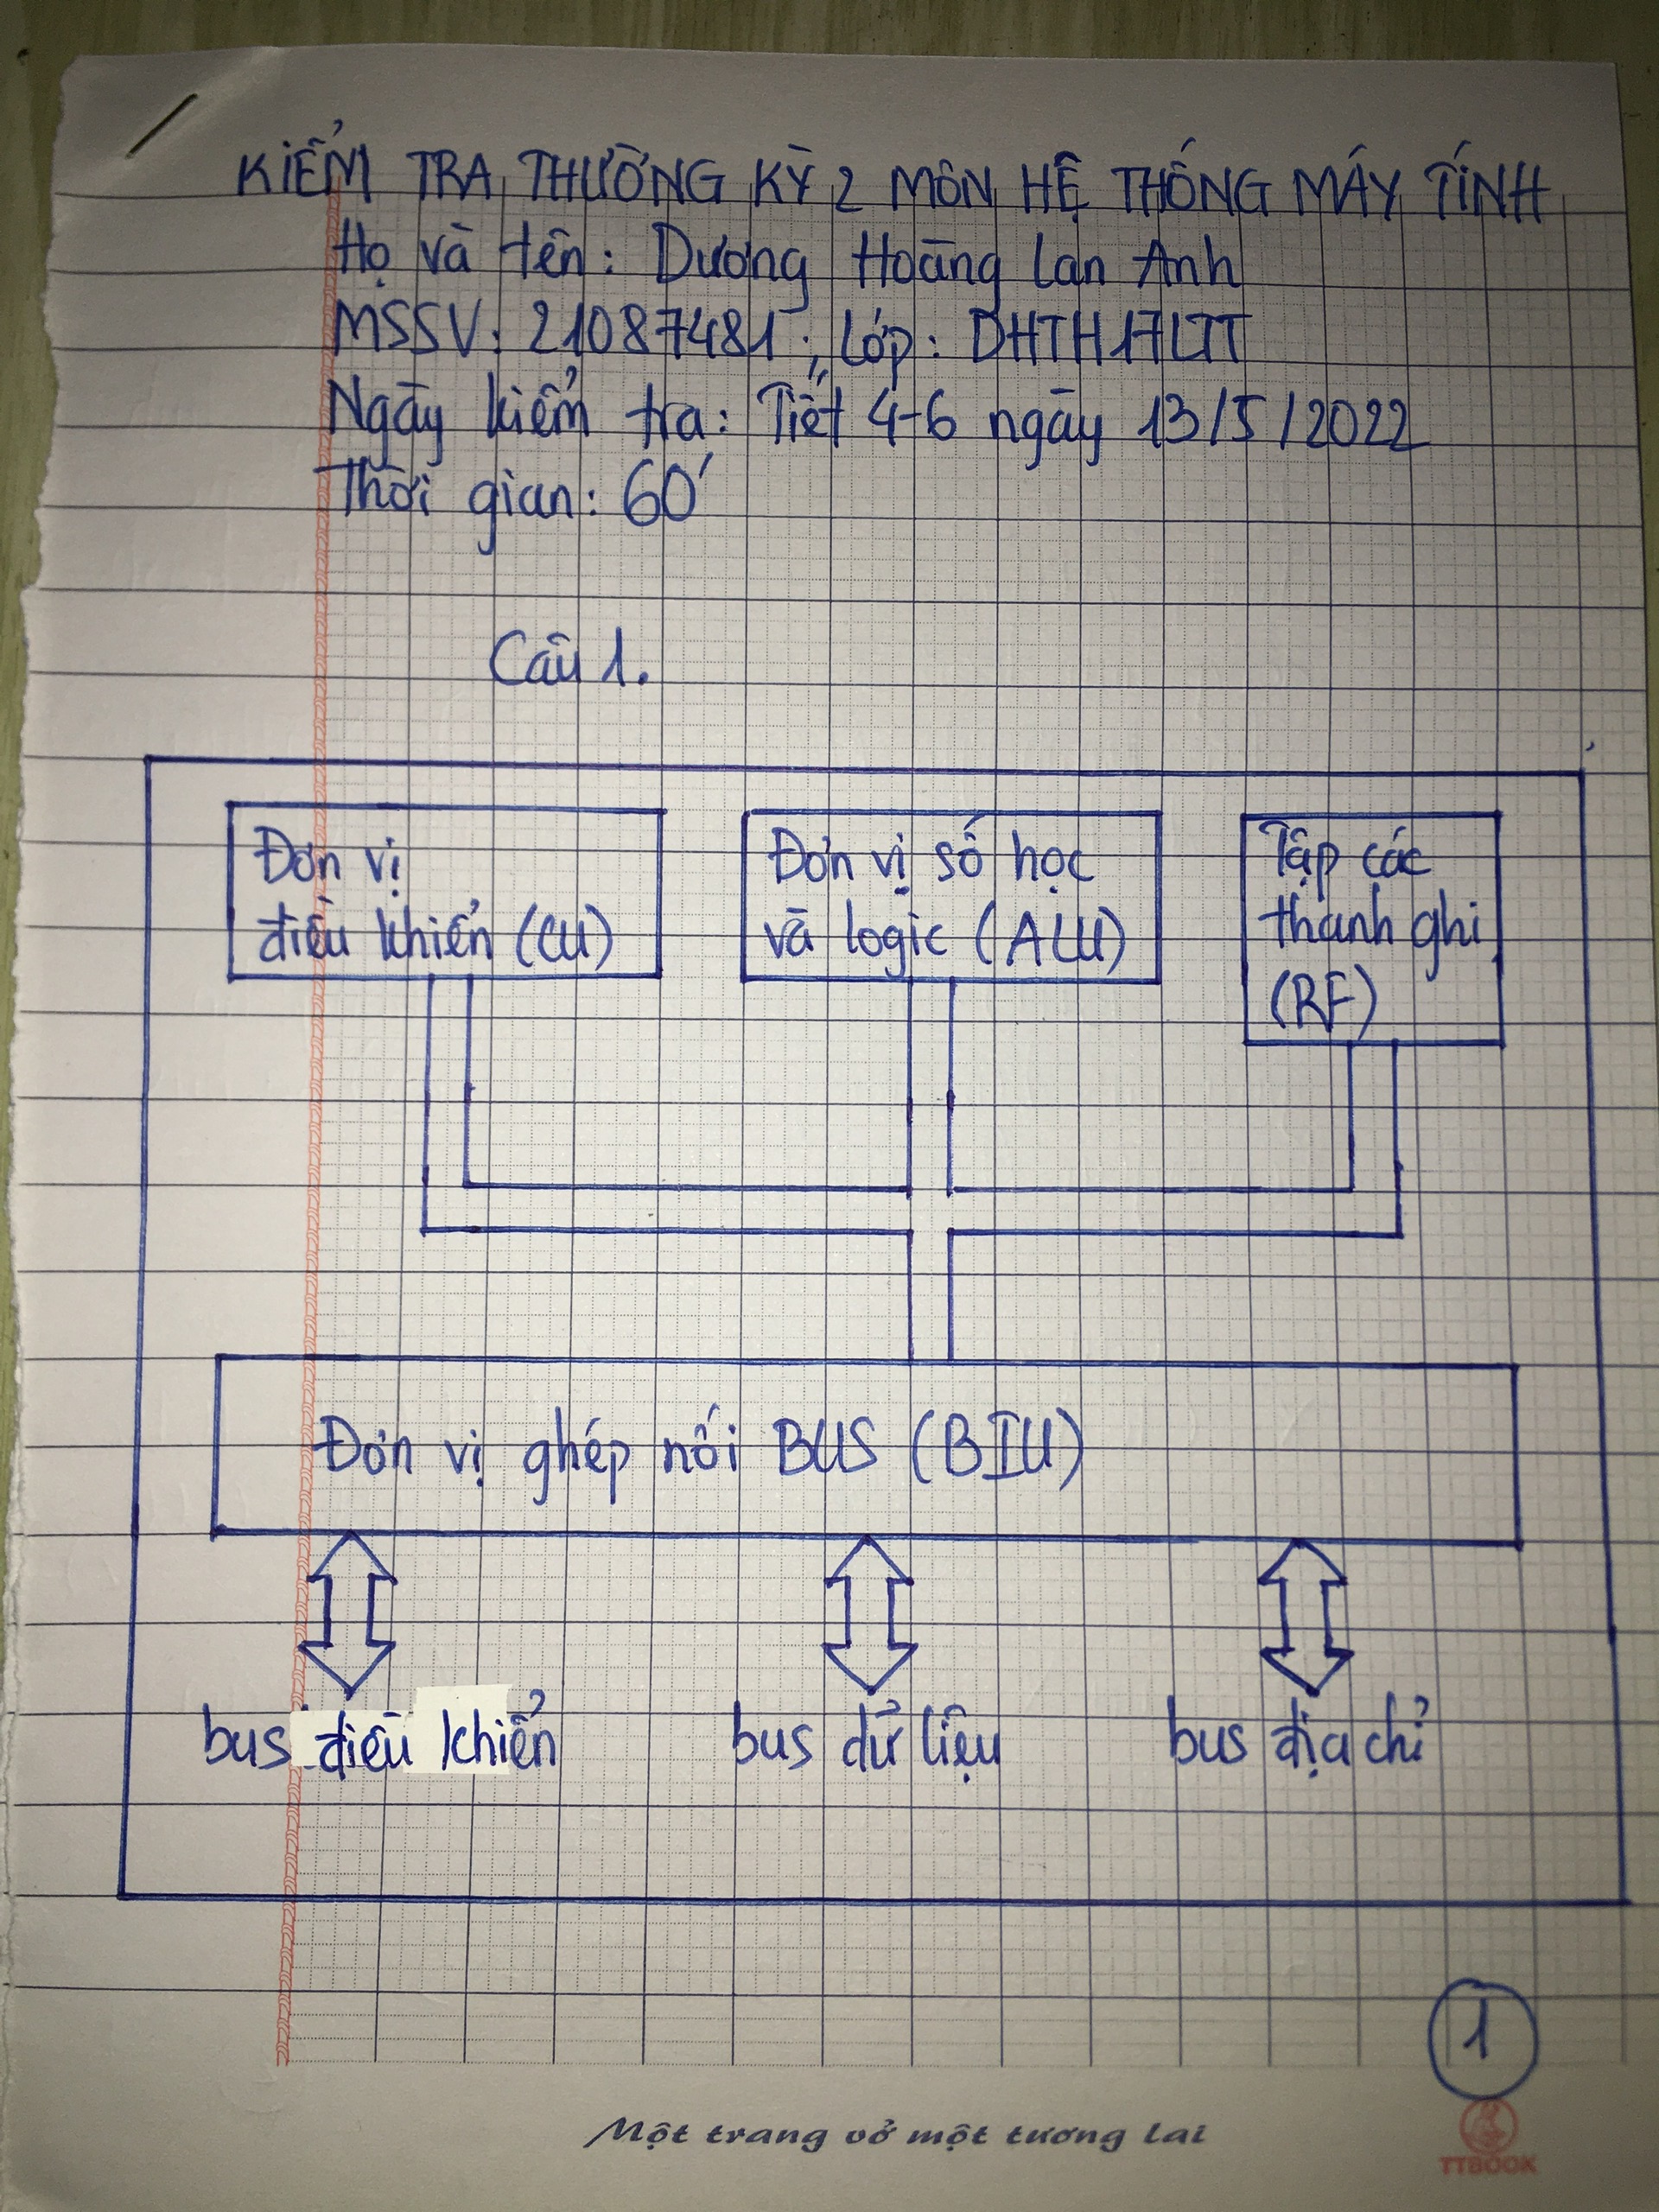 KIỂM TRA THƯỜNG KỲ 2 MÔN HỆ THỐNG MÁY TÍNH
Họ và tên: Dương Hoàng Lan Anh
MSSV: 21087481; Lớp: DHTH17LTT
Ngày kiểm tra: Tiết 4-6 ngày 13/5/2022
Thời gian: 60'
Câu 1.
Đơn vị
điều khiển (CU)
Đơn vị số học
và logic (ALU)
Tập các
thanh ghi
(RF)
Đơn vị ghép nối BUS (BIU)
bus điều khiển bus dữ liệu bus địa chỉ
1
Một trang vở một tương lai
TTBOOK